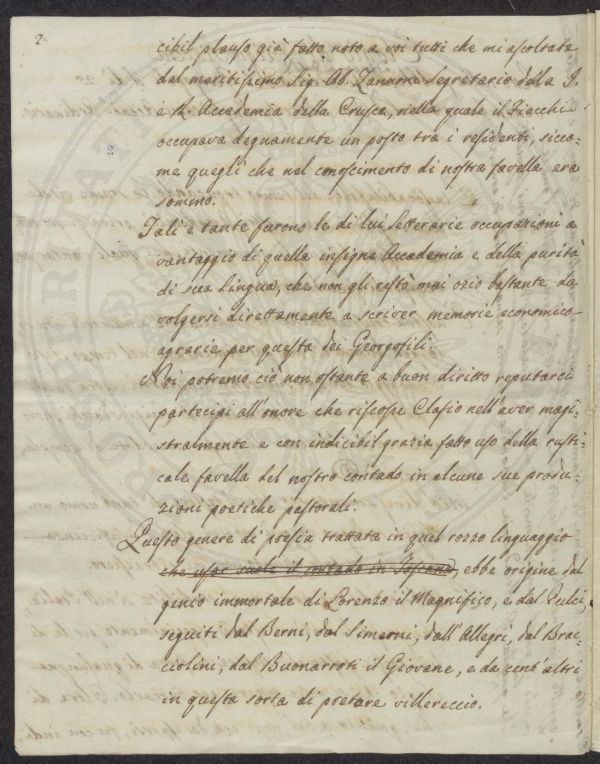 2.
cibil plauso già fatto noto a voi tutti che mi ascoltate
dal meritissimo Sig. Ab. Zannoni Segretario della I.
e R. Accademia della Crusca, nella quale il Fiacchi
occupava degnamente un posto tra i residenti, sicco-
me quegli che nel conoscimento di nostra favella era
sommo.
Tali e tante furono le di lui letterarie occupazioni a
vantaggio di quella insigne Accademia e della purità
di sua Lingua, che non gli restò mai ozio bastante da
volgersi direttamente a scriver memorie economico-
agrarie per questa dei Georgofili.
Noi potremo ciò non ostante a buon diritto reputarci
partecipi all'onore che riscosse Clasio nell'aver magi-
stralmente e con indicibil grazia fatto uso della rusti-
cale favella del nostro contado in alcune sue produ-
zioni poetiche pastorali.
Questo genere di poesia trattata in quel rozzo linguaggio
che usar suole il contado in Toscana, ebbe origine dal
genio immortale di Lorenzo il Magnifico, e dal Pulci,
seguiti dal Berni, dal Simeoni, dall'Allegri, dal Brac-
ciolini, dal Buonarroti il Giovane, e da cent'altri
in questa sorta di poetare villereccio.